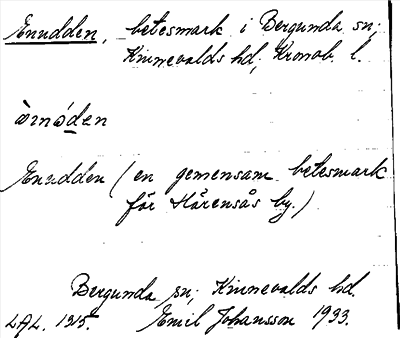 Enudden, betesmark i Bergunda sn;
Kinnevalds hd; Kronob. l.
Enudden (en gemensam betesmark
för Härensås by.)
Bergunda sn; Kinnevalds hd.
LAL. 1315. Emil Johansson 1933.